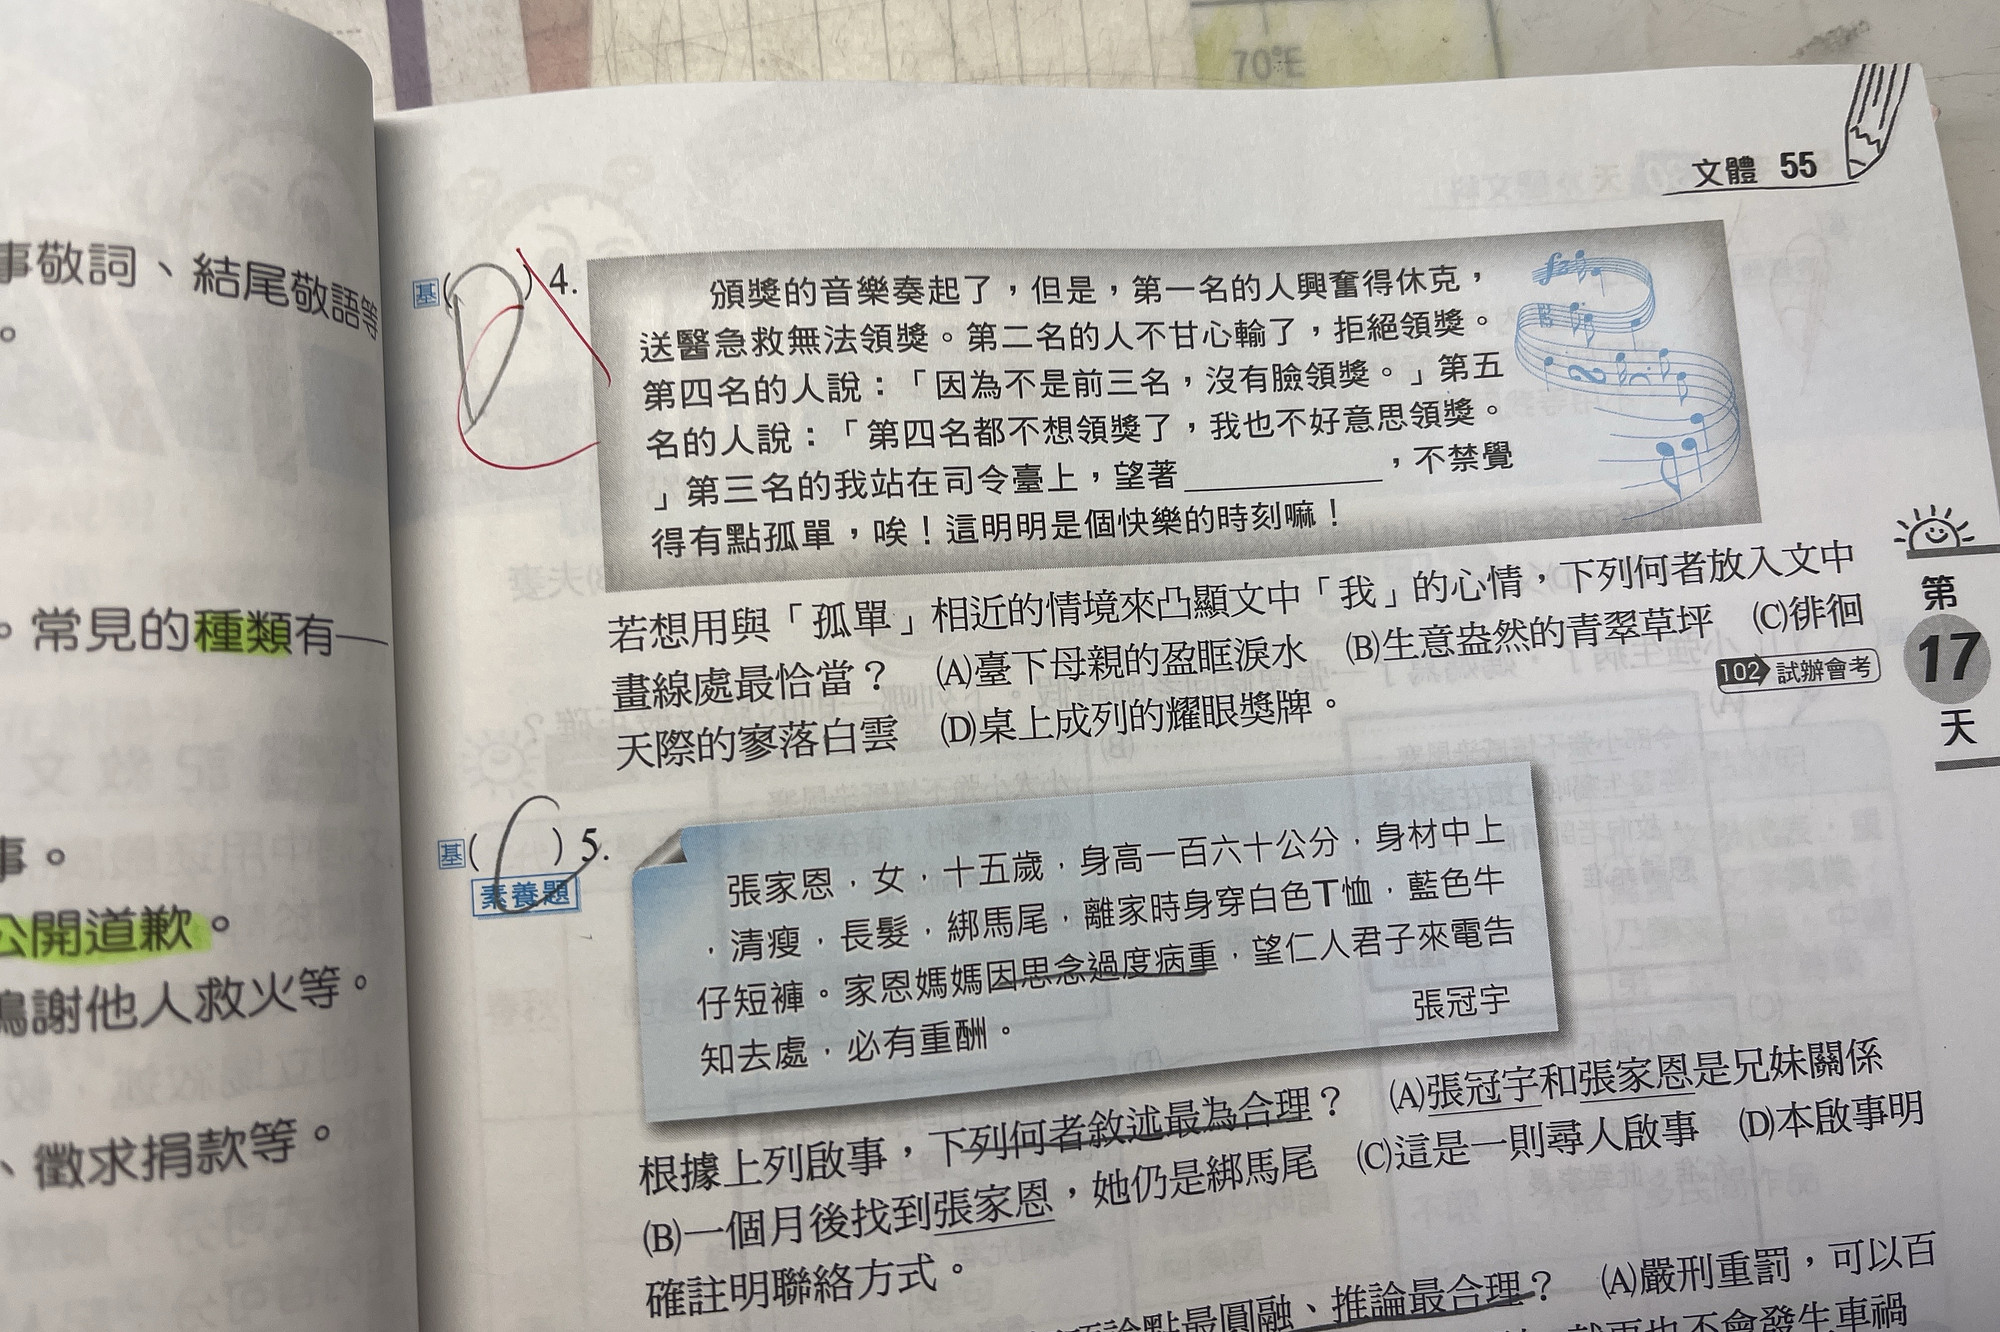 70°E
文體 55
事敬詞、結尾敬語等
。
。常見的種類有—
事。
公開道歉。
鳴謝他人救火等。
、徵求捐款等。
基( D )4.
頒獎的音樂奏起了，但是，第一名的人興奮得休克，
送醫急救無法領獎。第二名的人不甘心輸了，拒絕領獎。
第四名的人說：「因為不是前三名，沒有臉領獎。」第五
名的人說：「第四名都不想領獎了，我也不好意思領獎。
」第三名的我站在司令臺上，望著＿＿＿＿＿，不禁覺
得有點孤單，唉！這明明是個快樂的時刻嘛！
若想用與「孤單」相近的情境來凸顯文中「我」的心情，下列何者放入文中
畫線處最恰當？　(A)臺下母親的盈眶淚水　(B)生意盎然的青翠草坪　(C)徘徊
天際的寥落白雲　(D)桌上成列的耀眼獎牌。
102 試辦會考
第
17
天
基( C )5.
素養題
張家恩，女，十五歲，身高一百六十公分，身材中上
，清瘦，長髮，綁馬尾，離家時身穿白色T恤，藍色牛
仔短褲。家恩媽媽因思念過度病重，望仁人君子來電告
知去處，必有重酬。
張冠宇
根據上列啟事，下列何者敘述最為合理？　(A)張冠宇和張家恩是兄妹關係
(B)一個月後找到張家恩，她仍是綁馬尾　(C)這是一則尋人啟事　(D)本啟事明
確註明聯絡方式。
論點最圓融、推論最合理？　(A)嚴刑重罰，可以百
也不會發生車禍